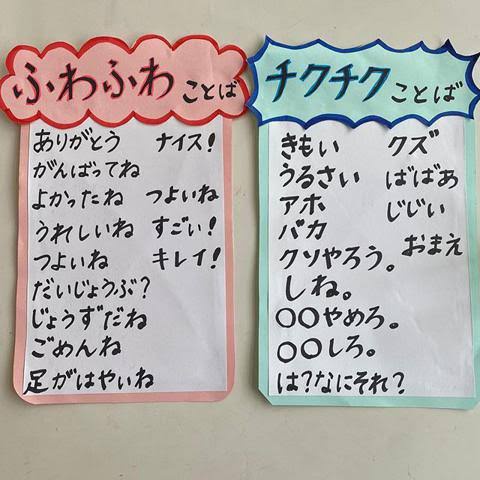 ふわふわことば
ありがとう ナイス!
がんばってね
よかったね つよいね
うれしいね すごい!
つよいね キレイ!
だいじょうぶ?
じょうずだね
ごめんね
足がはやいね
チクチクことば
きもい クズ
うるさい ばばあ
アホ じじい
バカ おまえ
クソやろう。
しね。
〇〇やめろ。
〇〇しろ。
は?なにそれ?